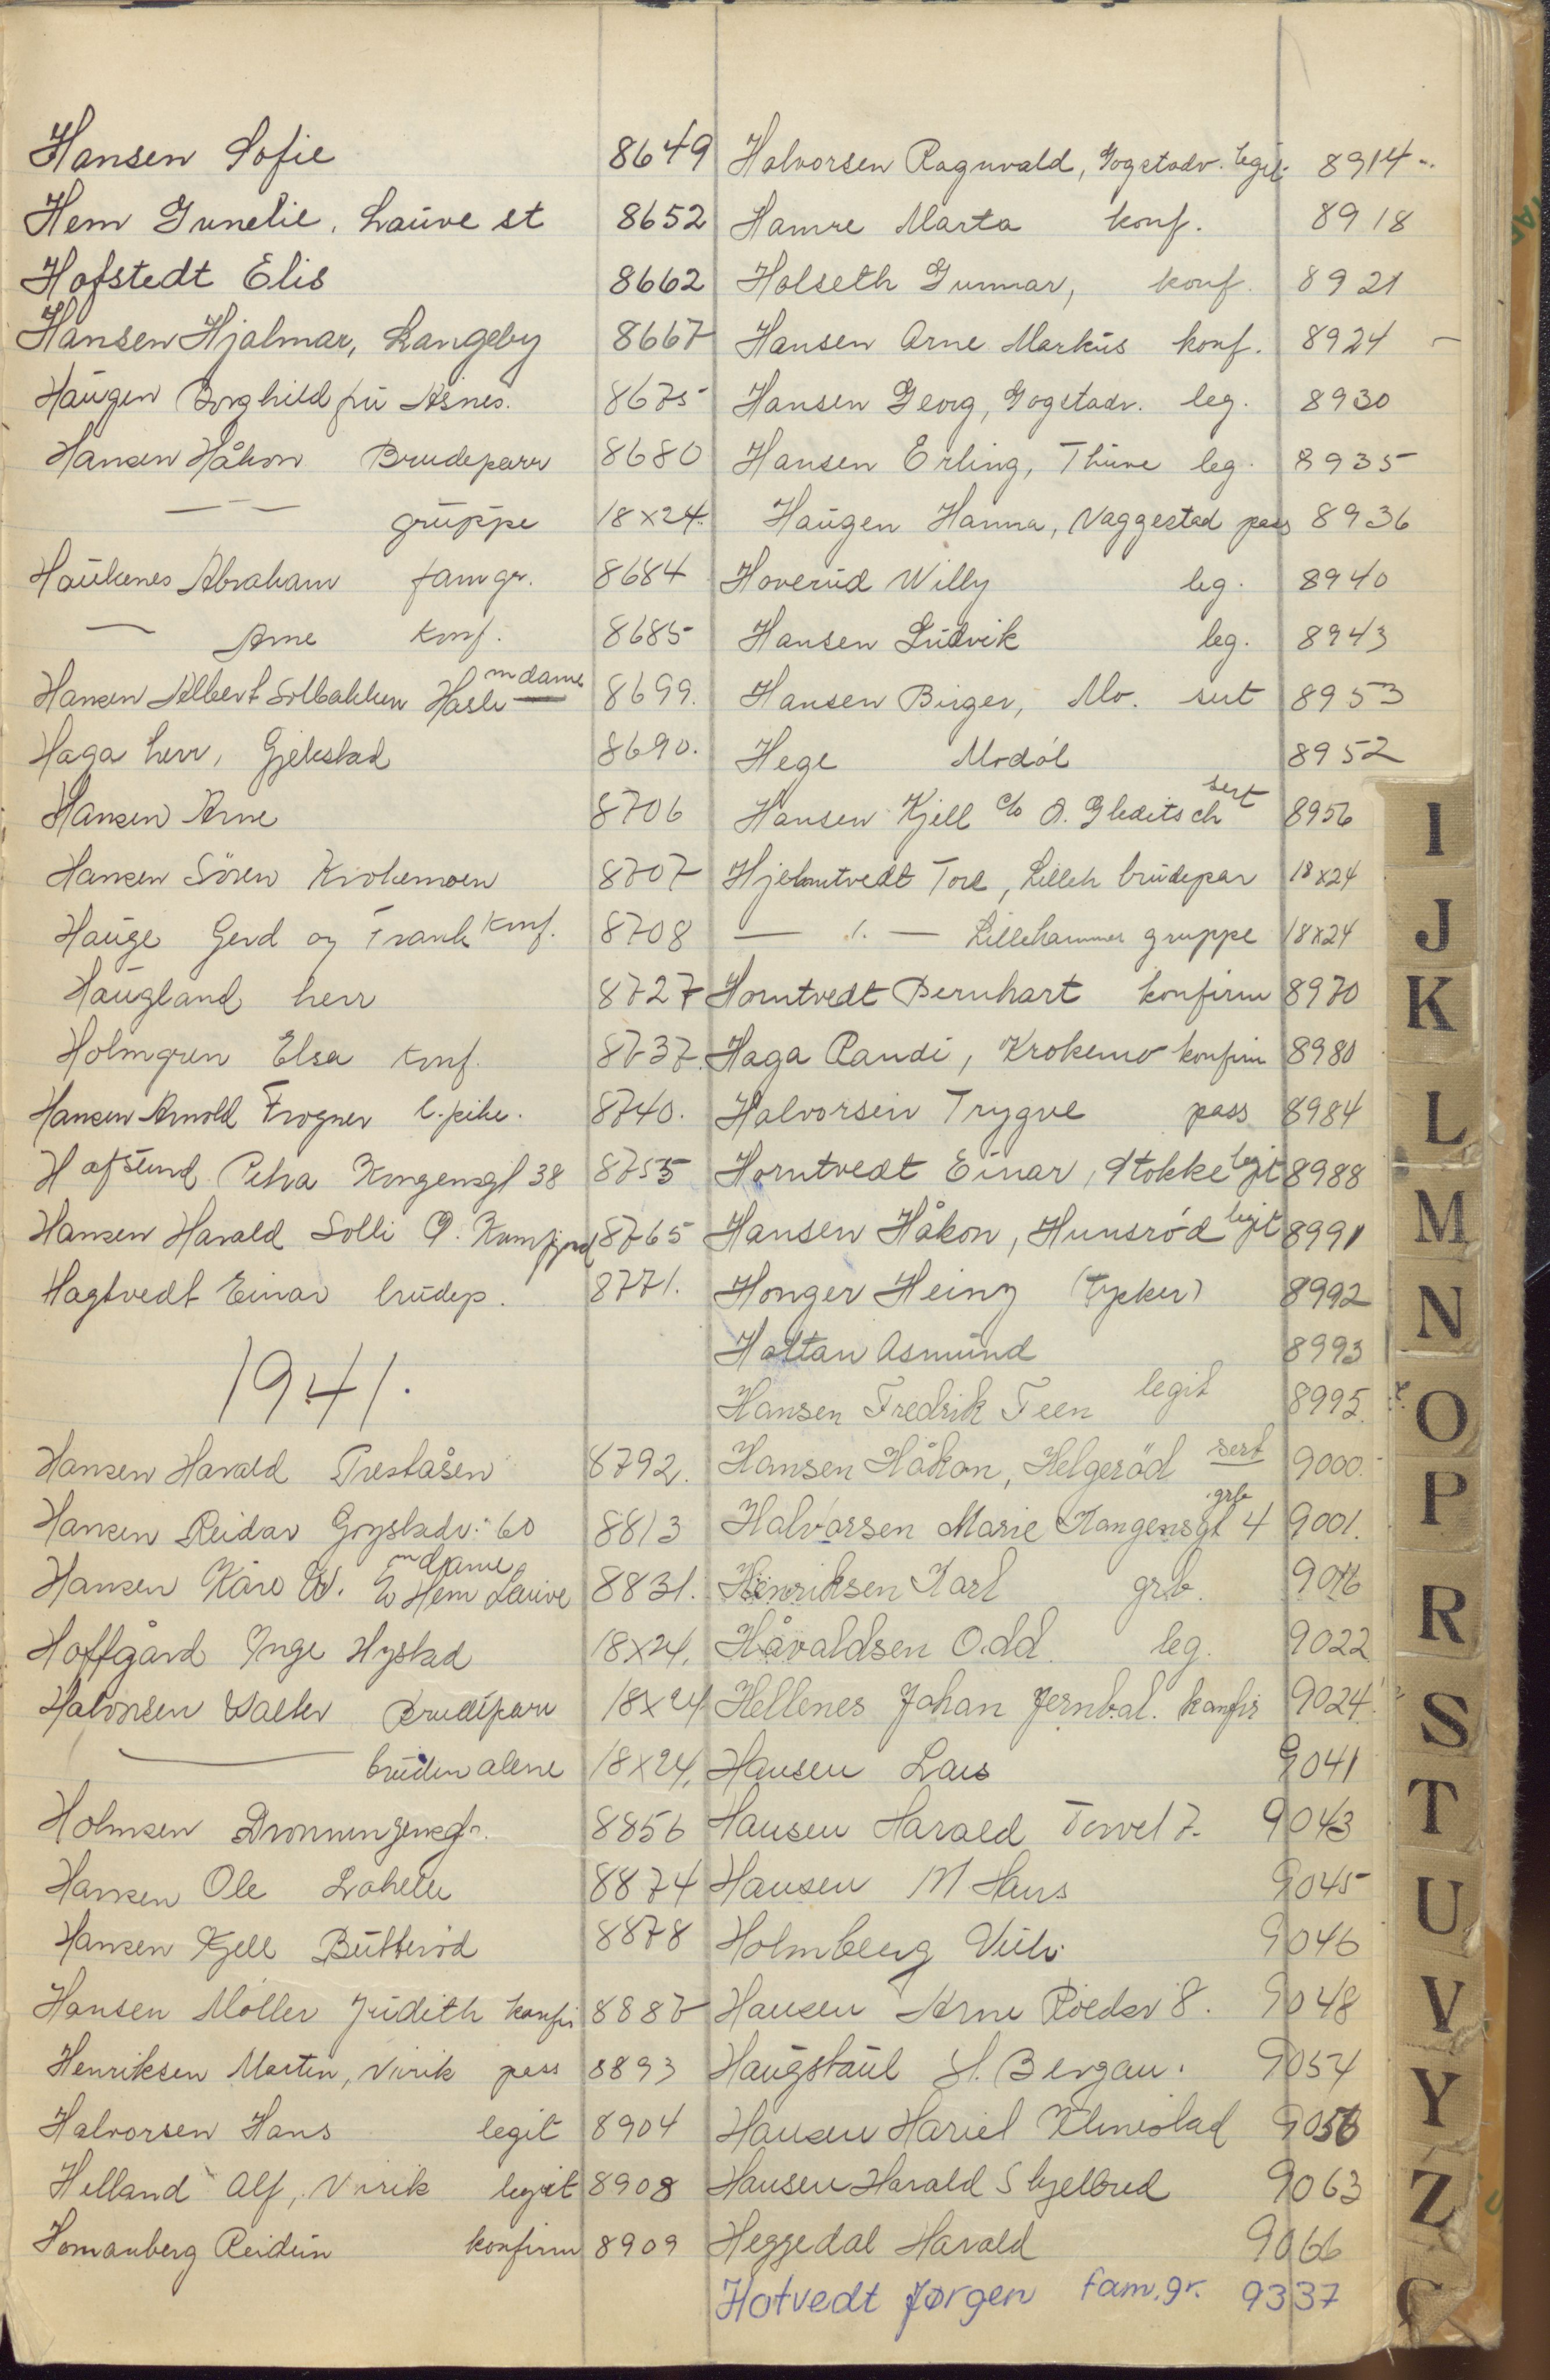 Hansen Sofie 8649
Hem Gunelie, Lauve st 8652
Hofstedt Elis 8662
Hansen Hjalmar, Langeby 8667
Haugen Borghild fru Åsnes. 8675
Hansen Håkon Brudeparr 8680
— — — gruppe 18x24.
Haukenes Abraham fam gr. 8684
— Arne konf. 8685
Hansen Albert Solbakken Hasle m dame 8699.
Haga herr, Gjekstad 8690.
Hansen Arne 8706
Hansen Sören Krokemoen 8707
Hauge Gerd og Frank konf. 8708
Haugland herr 8727
Holmgren Elsa konf. 8737.
Hansen Arnold Frogner l. pike. 8740.
Hafsund Petra Kongensgt 38 8755
Hansen Harald Solli 8765
Hagtvedt Einar brudep. 8771.
1941.
Hansen Harald Preståsen 8792.
Hansen Reidar Gogstadv. 60 8813
Hansen Kåre W. Hem Lauve m dame 8831.
Hoffgård Inge Hystad 18x24.
Halvorsen Walter Brudeparr 18x24
— bruden alene 18x24.
Holmsen Dronningensgt. 8856
Hansen Ole 8874
Hansen Kjell Butterød 8878
Hansen Møller Judith konfir 8887
Henriksen Martin, Virik pass 8893
Halvorsen Hans legit 8904
Helland Alf, Virik legit 8908
Homanberg Reidun konfirm 8909
Halvorsen Ragnvald, Gogstadv. legit. 8914
Hamre Marta konf. 8918
Holseth Gunnar, konf. 8921
Hansen Arne Markus konf. 8924
Hansen Georg, Gogstadv. leg. 8930
Hansen Erling, Thune leg. 8935
Haugen Hanna, Vaggestad pass 8936
Hoverud Willy leg. 8940
Hansen Ludvik leg. 8943
Hansen Birger, Mo. sert 8953
Hege Modøl 8952
Hansen Kjell c/o A. Gleditsch sert 8956
Hjelmtvedt Tore, Lilleh brudepar 18x24
— " — Lillehammer gruppe 18x24
Horntvedt Bernhart konfirm 8970
Haga Randi, Krokemo konfirm 8980
Halvorsen Trygve pass 8984
Horntvedt Einar, Stokke legit 8988
Hansen Håkon, Hunsrød legit 8991
Honger Heinz (Tysker) 8992
Hottan Asmund 8993
Hansen Fredrik Feen legit 8995.
Hansen Håkon, Helgeröd sert 9000.
Halvorsen Marie Kongensgt 4 grb 9001.
Henriksen Karl grb.
Håvaldsen Odd. leg. 9022
Hellenes Johan Jernbal. konfir 9024.
Hansen Lars 9041
Hansen Harald Torvet 7. 9043
Hansen M Hans 9045
Holmberg 9046
Hansen Arne 8. 9048
Haugstaul H. Bergan. 9054
Hansen 9056
Hansen Harald Skjelbred 9063
Heggedal Harald 9066
Hotvedt Jørgen fam. gr. 9337
I
J
K
L
M
N
O
P
R
S
T
U
V
Y
Z